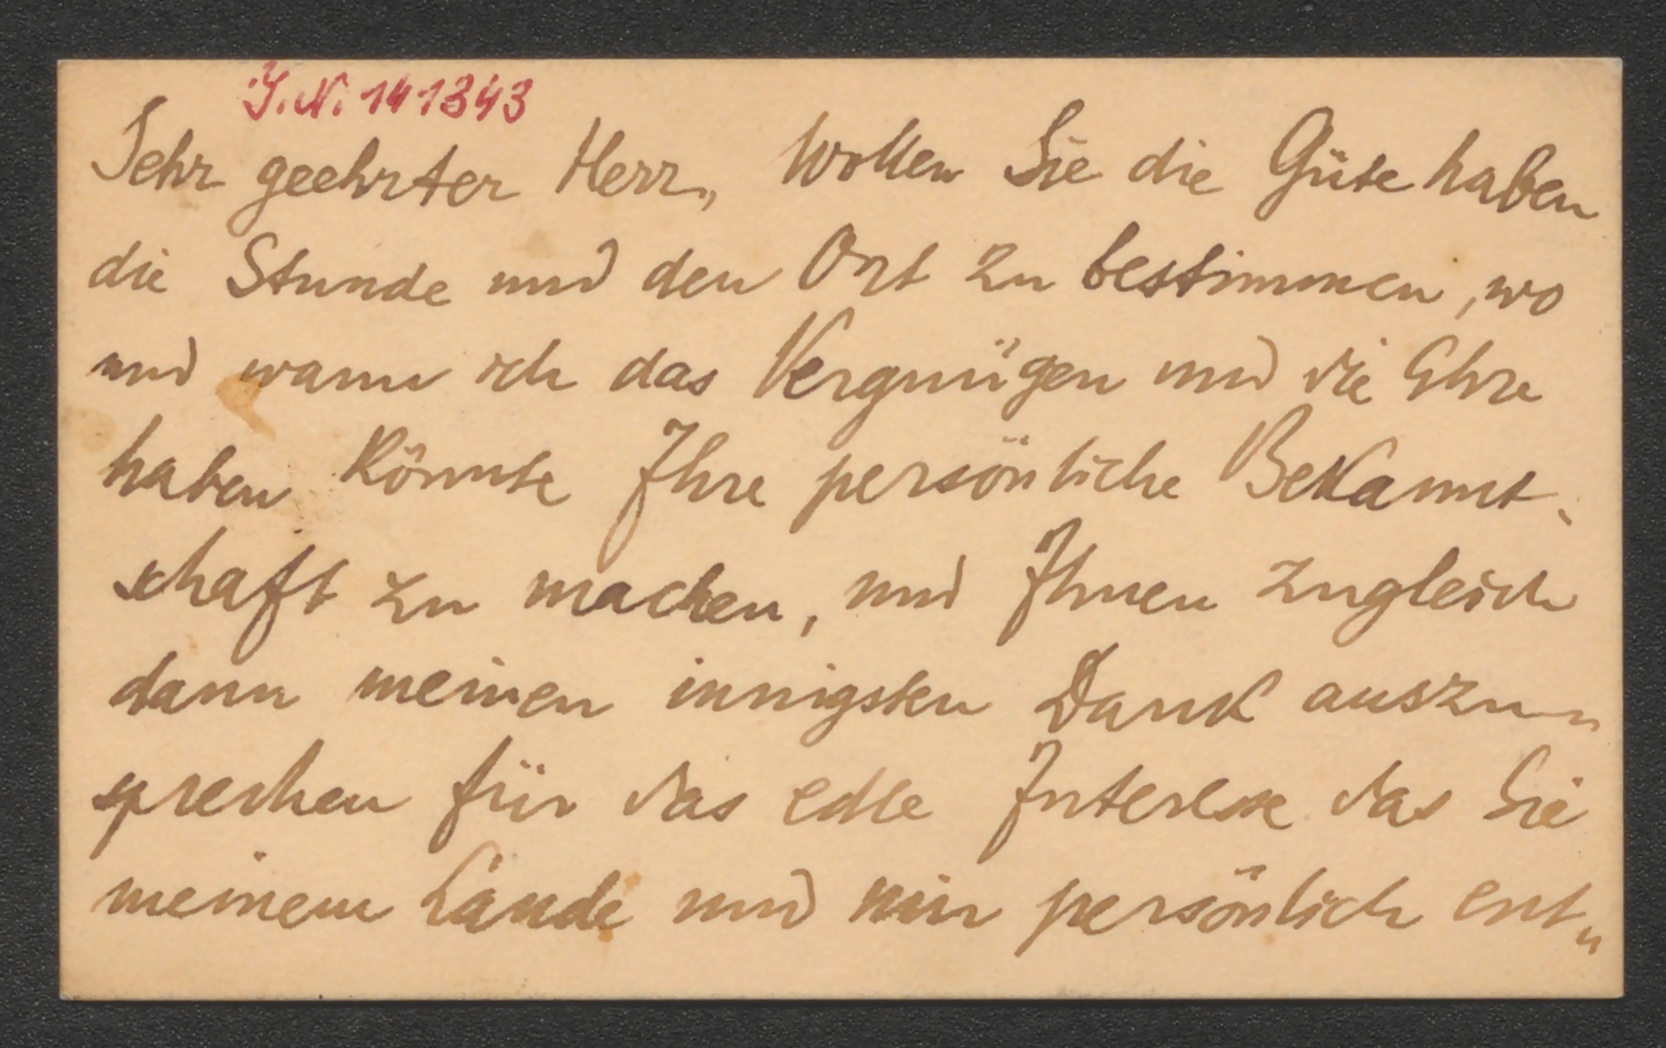 J.N. 141343
Sehr geehrter Herr, Wollen Sie die Güte haben
die Stunde und den Ort zu bestimmen, wo
und wann ich das Vergnügen und die Ehre
haben könnte Ihre persönliche Bekannt-
schaft zu machen, und Ihnen zugleich
dann meinen innigsten Dank auszu-
sprechen für das edle Interesse das Sie
meinem Lande und mir persönlich ent„